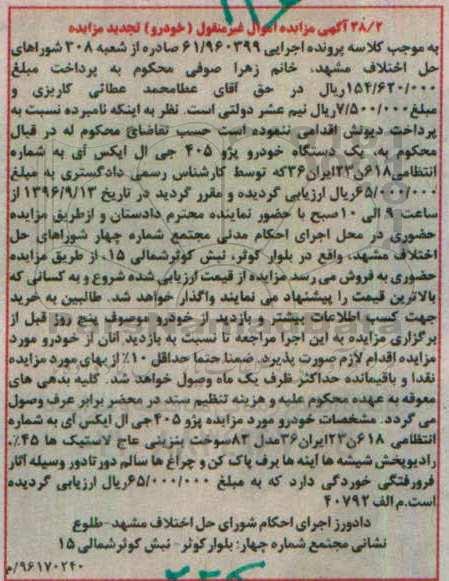 ۳۸/۲ آگهی مزایده اموال غیرمنقول (خودرو) تجدید مزایده
به موجب کلاسه پرونده اجرایی ۶۱/۹۶۰۳۹۹ صادره از شعبه ۳۰۸ شوراهای
حل اختلاف مشهد، خانم زهرا صوفی محکوم به پرداخت مبلغ
۱۵۴/۶۲۰/۰۰۰ریال در حق آقای عطامحمد عطائی کاریزی و
مبلغ۷/۵۰۰/۰۰۰ریال نیم عشر دولتی است. نظر به اینکه نامبرده نسبت به
پرداخت دیونش اقدامی ننموده است حسب تقاضای محکوم له در قبال
محکوم به، یک دستگاه خودرو پژو ۴۰۵ جی ال ایکس آی به شماره
انتظامی۶۱۸ن۲۳ایران۳۶که توسط کارشناس رسمی دادگستری به مبلغ
۶۵/۰۰۰/۰۰۰ریال ارزیابی گردیده و مقرر گردید در تاریخ ۱۳۹۶/۹/۱۳ از
ساعت ۹ الی ۱۰صبح با حضور نماینده محترم دادستان و ازطریق مزایده
حضوری در محل اجرای احکام مدنی مجتمع شماره چهار شوراهای حل
اختلاف مشهد، واقع در بلوار کوثر، نبش کوثرشمالی ۱۵، از طریق مزایده
حضوری به فروش می رسد مزایده از قیمت ارزیابی شده شروع و به کسانی که
بالاترین قیمت را پیشنهاد می نمایند واگذار خواهد شد. طالبین به خرید
جهت کسب اطلاعات بیشتر و بازدید از خودرو موصوف پنج روز قبل از
برگزاری مزایده به این اجرا مراجعه تا نسبت به بازدید آنان از خودرو مورد
مزایده اقدام لازم صورت پذیرد. ضمنا حتما حداقل ۱۰٪ از بهای مورد مزایده
نقدا و باقیمانده حداکثر ظرف یک ماه وصول خواهد شد. کلیه بدهی های
معوقه به عهده محکوم علیه و هزینه تنظیم سند در محضر برابر عرف وصول
می گردد. مشخصات خودرو مورد مزایده پژو ۴۰۵جی ال ایکس آی به شماره
انتظامی ۶۱۸ن۲۳ایران۳۶مدل ۸۳سوخت بنزینی عاج لاستیک ها ۴۵٪،
رادیوپخش شیشه ها آینه ها برف پاک کن و چراغ ها سالم دورتادور وسیله آثار
فرورفتگی خوردگی دارد که به مبلغ ۶۵/۰۰۰/۰۰۰ریال ارزیابی گردیده
است.م الف ۴۰۷۹۲
دادورز اجرای احکام شورای حل اختلاف مشهد-طلوع
نشانی مجتمع شماره چهار: بلوار کوثر- نبش کوثرشمالی ۱۵
۹۶۱۷۰۲۴۰/م